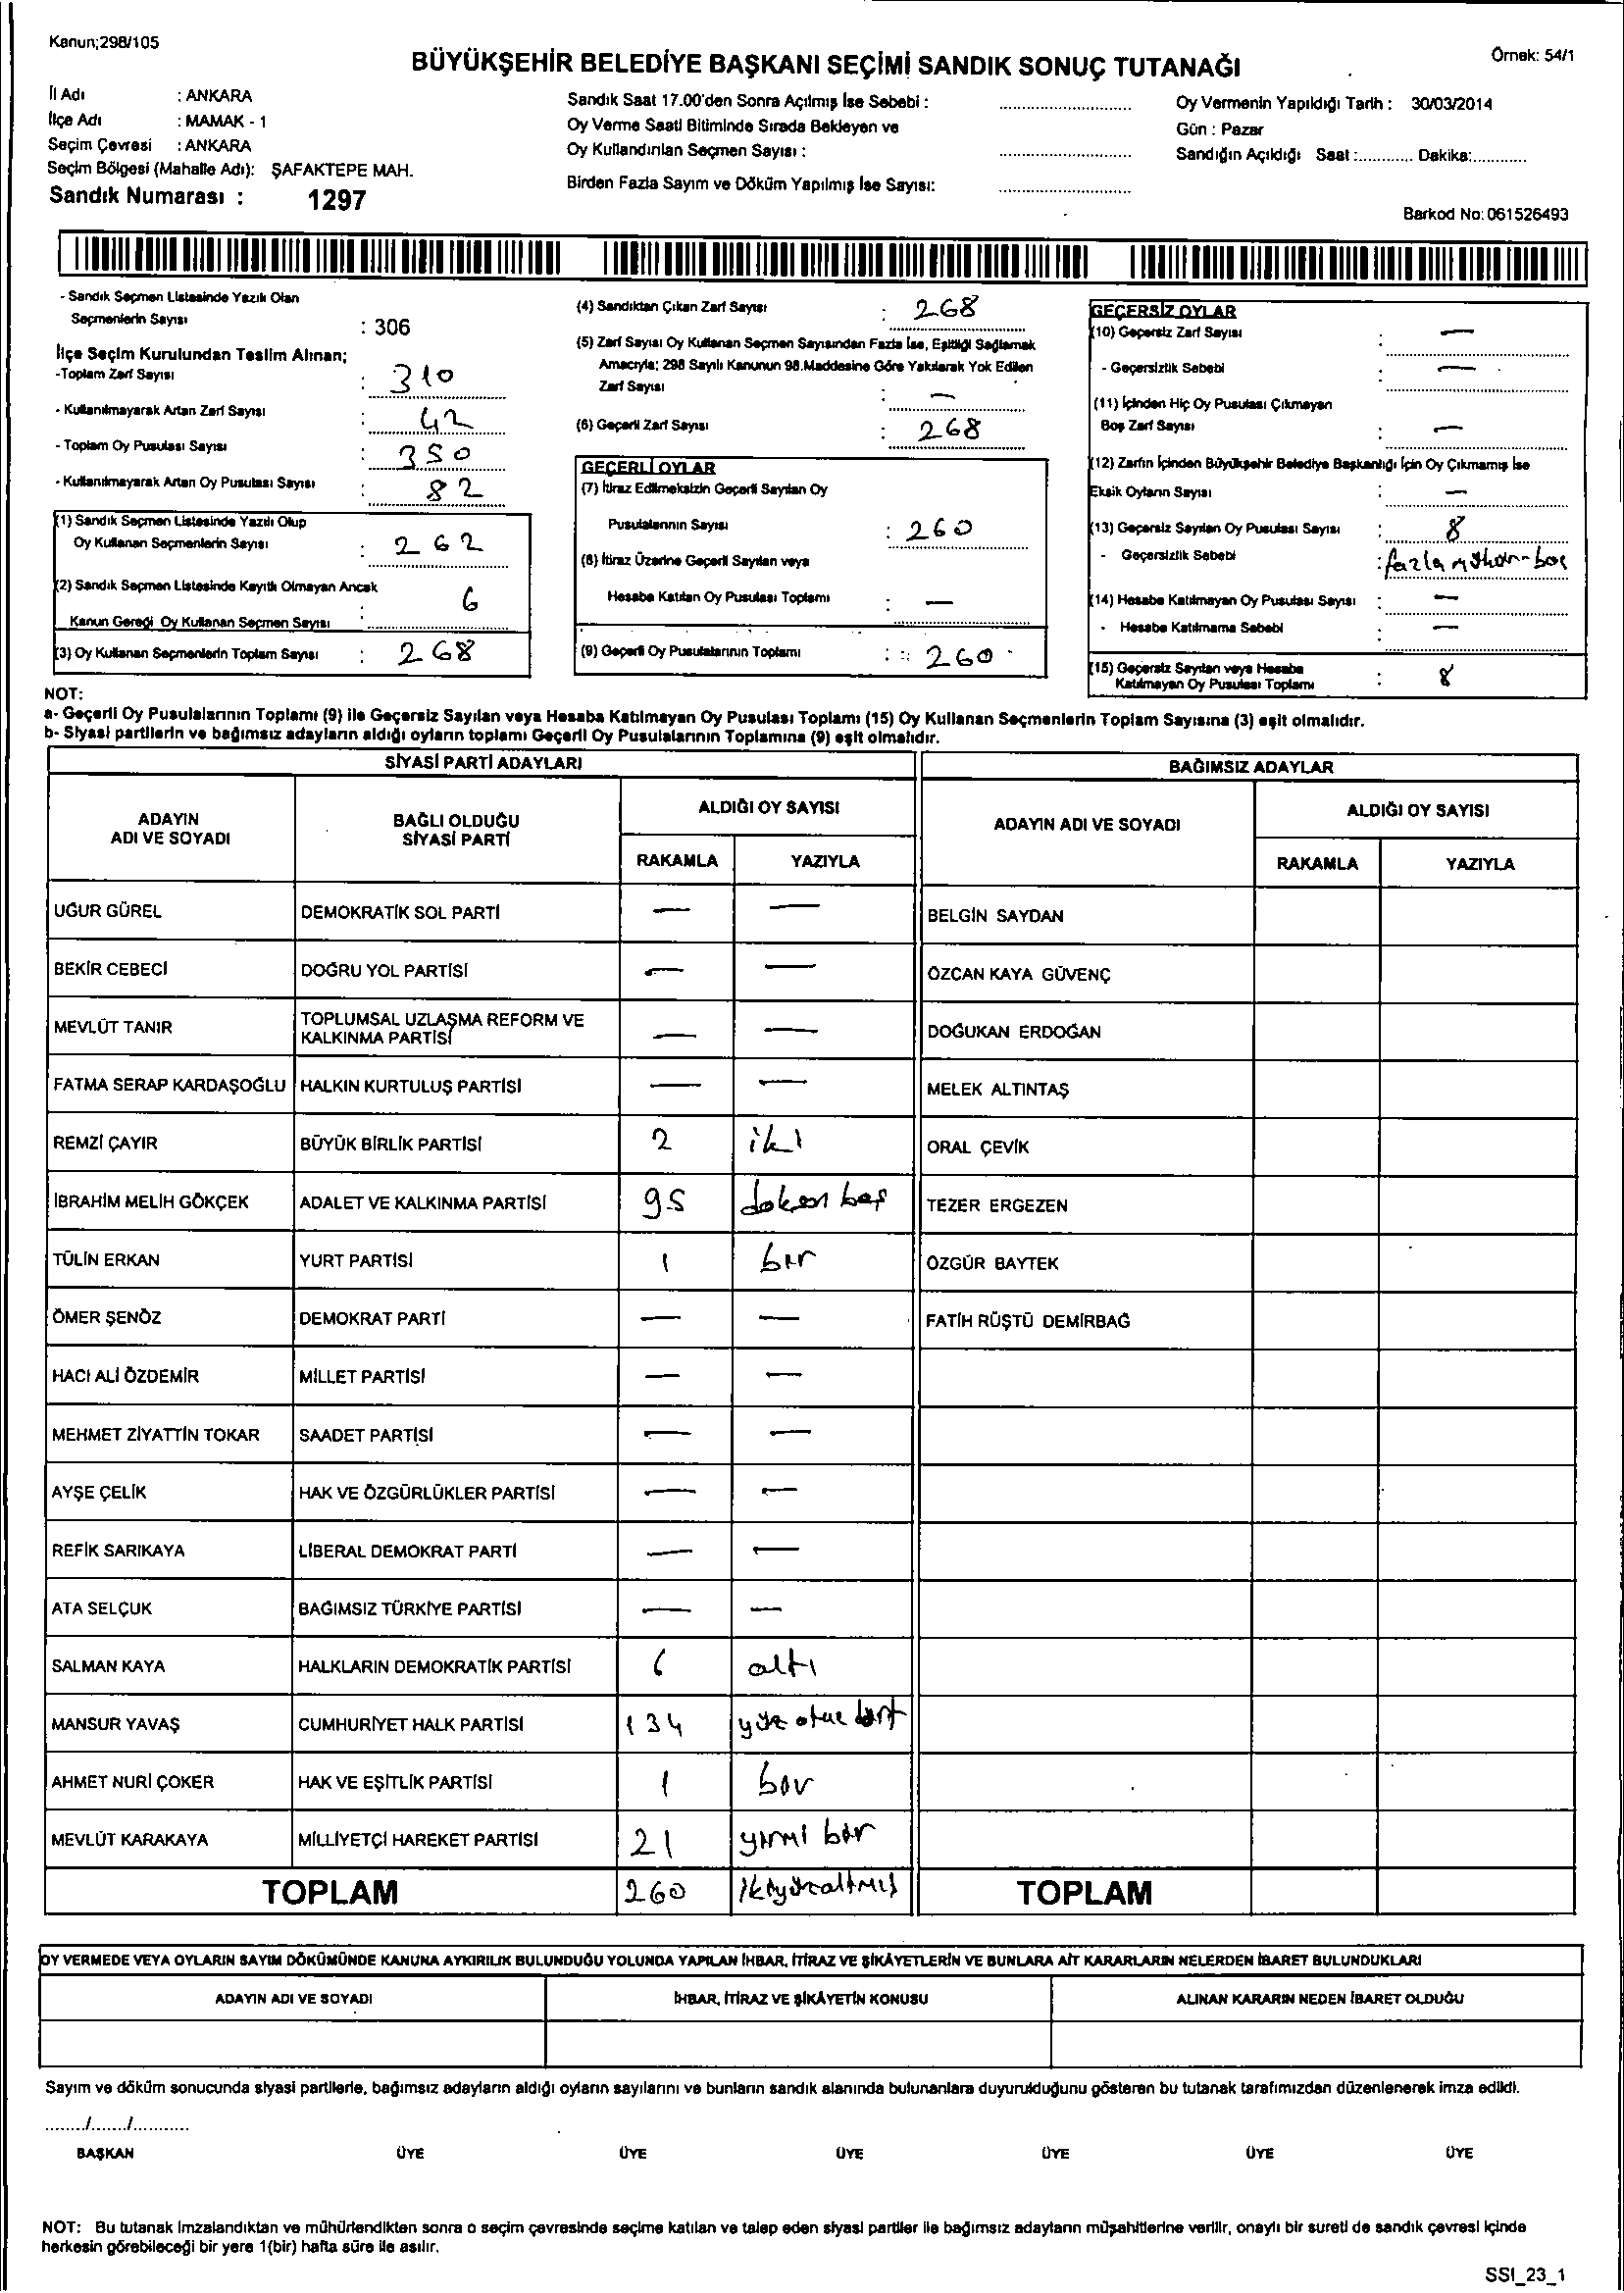 Kanun;298/105
BÜYÜKŞEHİR BELEDİYE BAŞKANI SEÇİMİ SANDIK SONUÇ TUTANAĞI
Örnek: 54/1
İl Adı : ANKARA
İlçe Adı : MAMAK - 1
Seçim Çevresi : ANKARA
Seçim Bölgesi (Mahalle Adı): ŞAFAKTEPE MAH.
Sandık Numarası : 1297
Sandık Saat 17.00'den Sonra Açılmış İse Sebebi : ..........
Oy Verme Saati Bitiminde Sırada Bekleyen ve
Oy Kullandırılan Seçmen Sayısı : ..........
Birden Fazla Sayım ve Döküm Yapılmış İse Sayısı: ..........
Oy Vermenin Yapıldığı Tarih : 30/03/2014
Gün : Pazar
Sandığın Açıldığı Saat :............ Dakika:............
Barkod No: 061526493
- Sandık Seçmen Listesinde Yazılı Olan
Seçmenlerin Sayısı : 306
İlçe Seçim Kurulundan Teslim Alınan;
-Toplam Zarf Sayısı : 310
- Kullanılmayarak Artan Zarf Sayısı : 42
- Toplam Oy Pusulası Sayısı : 350
- Kullanılmayarak Artan Oy Pusulası Sayısı : 82
(1) Sandık Seçmen Listesinde Yazılı Olup
Oy Kullanan Seçmenlerin Sayısı : 262
(2) Sandık Seçmen Listesinde Kayıtlı Olmayan Ancak
Kanun Gereği Oy Kullanan Seçmen Sayısı : 6
(3) Oy Kullanan Seçmenlerin Toplam Sayısı : 268
(4) Sandıktan Çıkan Zarf Sayısı : 268
(5) Zarf Sayısı Oy Kullanan Seçmen Sayısından Fazla İse, Eşitliği Sağlamak
Amacıyla; 298 Sayılı Kanunun 98.Maddesine Göre Yakılarak Yok Edilen
Zarf Sayısı : —
(6) Geçerli Zarf Sayısı : 268
GEÇERLİ OYLAR
(7) İtiraz Edilmeksizin Geçerli Sayılan Oy
Pusulalarının Sayısı : 260
(8) İtiraz Üzerine Geçerli Sayılan veya
Hesaba Katılan Oy Pusulası Toplamı : —
(9) Geçerli Oy Pusulalarının Toplamı : 260
GEÇERSİZ OYLAR
(10) Geçersiz Zarf Sayısı : —
- Geçersizlik Sebebi : —
(11) İçinden Hiç Oy Pusulası Çıkmayan
Boş Zarf Sayısı : —
(12) Zarfın İçinden Büyükşehir Belediye Başkanlığı İçin Oy Çıkmamış İse
Eksik Oyların Sayısı : —
(13) Geçersiz Sayılan Oy Pusulası Sayısı : 8
- Geçersizlik Sebebi : fazla mühür-boş
(14) Hesaba Katılmayan Oy Pusulası Sayısı : —
- Hesaba Katılmama Sebebi : —
(15) Geçersiz Sayılan veya Hesaba
Katılmayan Oy Pusulası Toplamı : 8
NOT:
a- Geçerli Oy Pusulalarının Toplamı (9) ile Geçersiz Sayılan veya Hesaba Katılmayan Oy Pusulası Toplamı (15) Oy Kullanan Seçmenlerin Toplam Sayısına (3) eşit olmalıdır.
b- Siyasi partilerin ve bağımsız adayların aldığı oyların toplamı Geçerli Oy Pusulalarının Toplamına (9) eşit olmalıdır.
SİYASİ PARTİ ADAYLARI
BAĞIMSIZ ADAYLAR
ADAYIN ADI VE SOYADI
BAĞLI OLDUĞU SİYASİ PARTİ
ALDIĞI OY SAYISI
RAKAMLA YAZIYLA
ADAYIN ADI VE SOYADI
ALDIĞI OY SAYISI
RAKAMLA YAZIYLA
UĞUR GÜREL DEMOKRATİK SOL PARTİ — — BELGİN SAYDAN
BEKİR CEBECİ DOĞRU YOL PARTİSİ — — ÖZCAN KAYA GÜVENÇ
MEVLÜT TANIR TOPLUMSAL UZLAŞMA REFORM VE KALKINMA PARTİSİ — — DOĞUKAN ERDOĞAN
FATMA SERAP KARDAŞOĞLU HALKIN KURTULUŞ PARTİSİ — — MELEK ALTINTAŞ
REMZİ ÇAYIR BÜYÜK BİRLİK PARTİSİ 2 iki ORAL ÇEVİK
İBRAHİM MELİH GÖKÇEK ADALET VE KALKINMA PARTİSİ 95 doksan beş TEZER ERGEZEN
TÜLİN ERKAN YURT PARTİSİ 1 bir ÖZGÜR BAYTEK
ÖMER ŞENÖZ DEMOKRAT PARTİ — — FATİH RÜŞTÜ DEMİRBAĞ
HACI ALİ ÖZDEMİR MİLLET PARTİSİ — —
MEHMET ZİYATTİN TOKAR SAADET PARTİSİ — —
AYŞE ÇELİK HAK VE ÖZGÜRLÜKLER PARTİSİ — —
REFİK SARIKAYA LİBERAL DEMOKRAT PARTİ — —
ATA SELÇUK BAĞIMSIZ TÜRKİYE PARTİSİ — —
SALMAN KAYA HALKLARIN DEMOKRATİK PARTİSİ 6 altı
MANSUR YAVAŞ CUMHURİYET HALK PARTİSİ 134 yüz otuz dört
AHMET NURİ ÇOKER HAK VE EŞİTLİK PARTİSİ 1 bir
MEVLÜT KARAKAYA MİLLİYETÇİ HAREKET PARTİSİ 21 yirmi bir
TOPLAM 260 ikiyüzaltmış TOPLAM
OY VERMEDE VEYA OYLARIN SAYIM DÖKÜMÜNDE KANUNA AYKIRILIK BULUNDUĞU YOLUNDA YAPILAN İHBAR, İTİRAZ VE ŞİKÂYETLERİN VE BUNLARA AİT KARARLARIN NELERDEN İBARET BULUNDUKLARI
ADAYIN ADI VE SOYADI İHBAR, İTİRAZ VE ŞİKÂYETİN KONUSU ALINAN KARARIN NEDEN İBARET OLDUĞU
Sayım ve döküm sonucunda siyasi partilerle, bağımsız adayların aldığı oyların sayılarını ve bunların sandık alanında bulunanlara duyurulduğunu gösteren bu tutanak tarafımızdan düzenlenerek imza edildi.
......../......./...........
BAŞKAN ÜYE ÜYE ÜYE ÜYE ÜYE ÜYE
NOT: Bu tutanak imzalandıktan ve mühürlendikten sonra o seçim çevresinde seçime katılan ve talep eden siyasi partiler ile bağımsız adayların müşahitlerine verilir, onaylı bir sureti de sandık çevresi içinde
herkesin görebileceği bir yere 1(bir) hafta süre ile asılır.
SSI_23_1